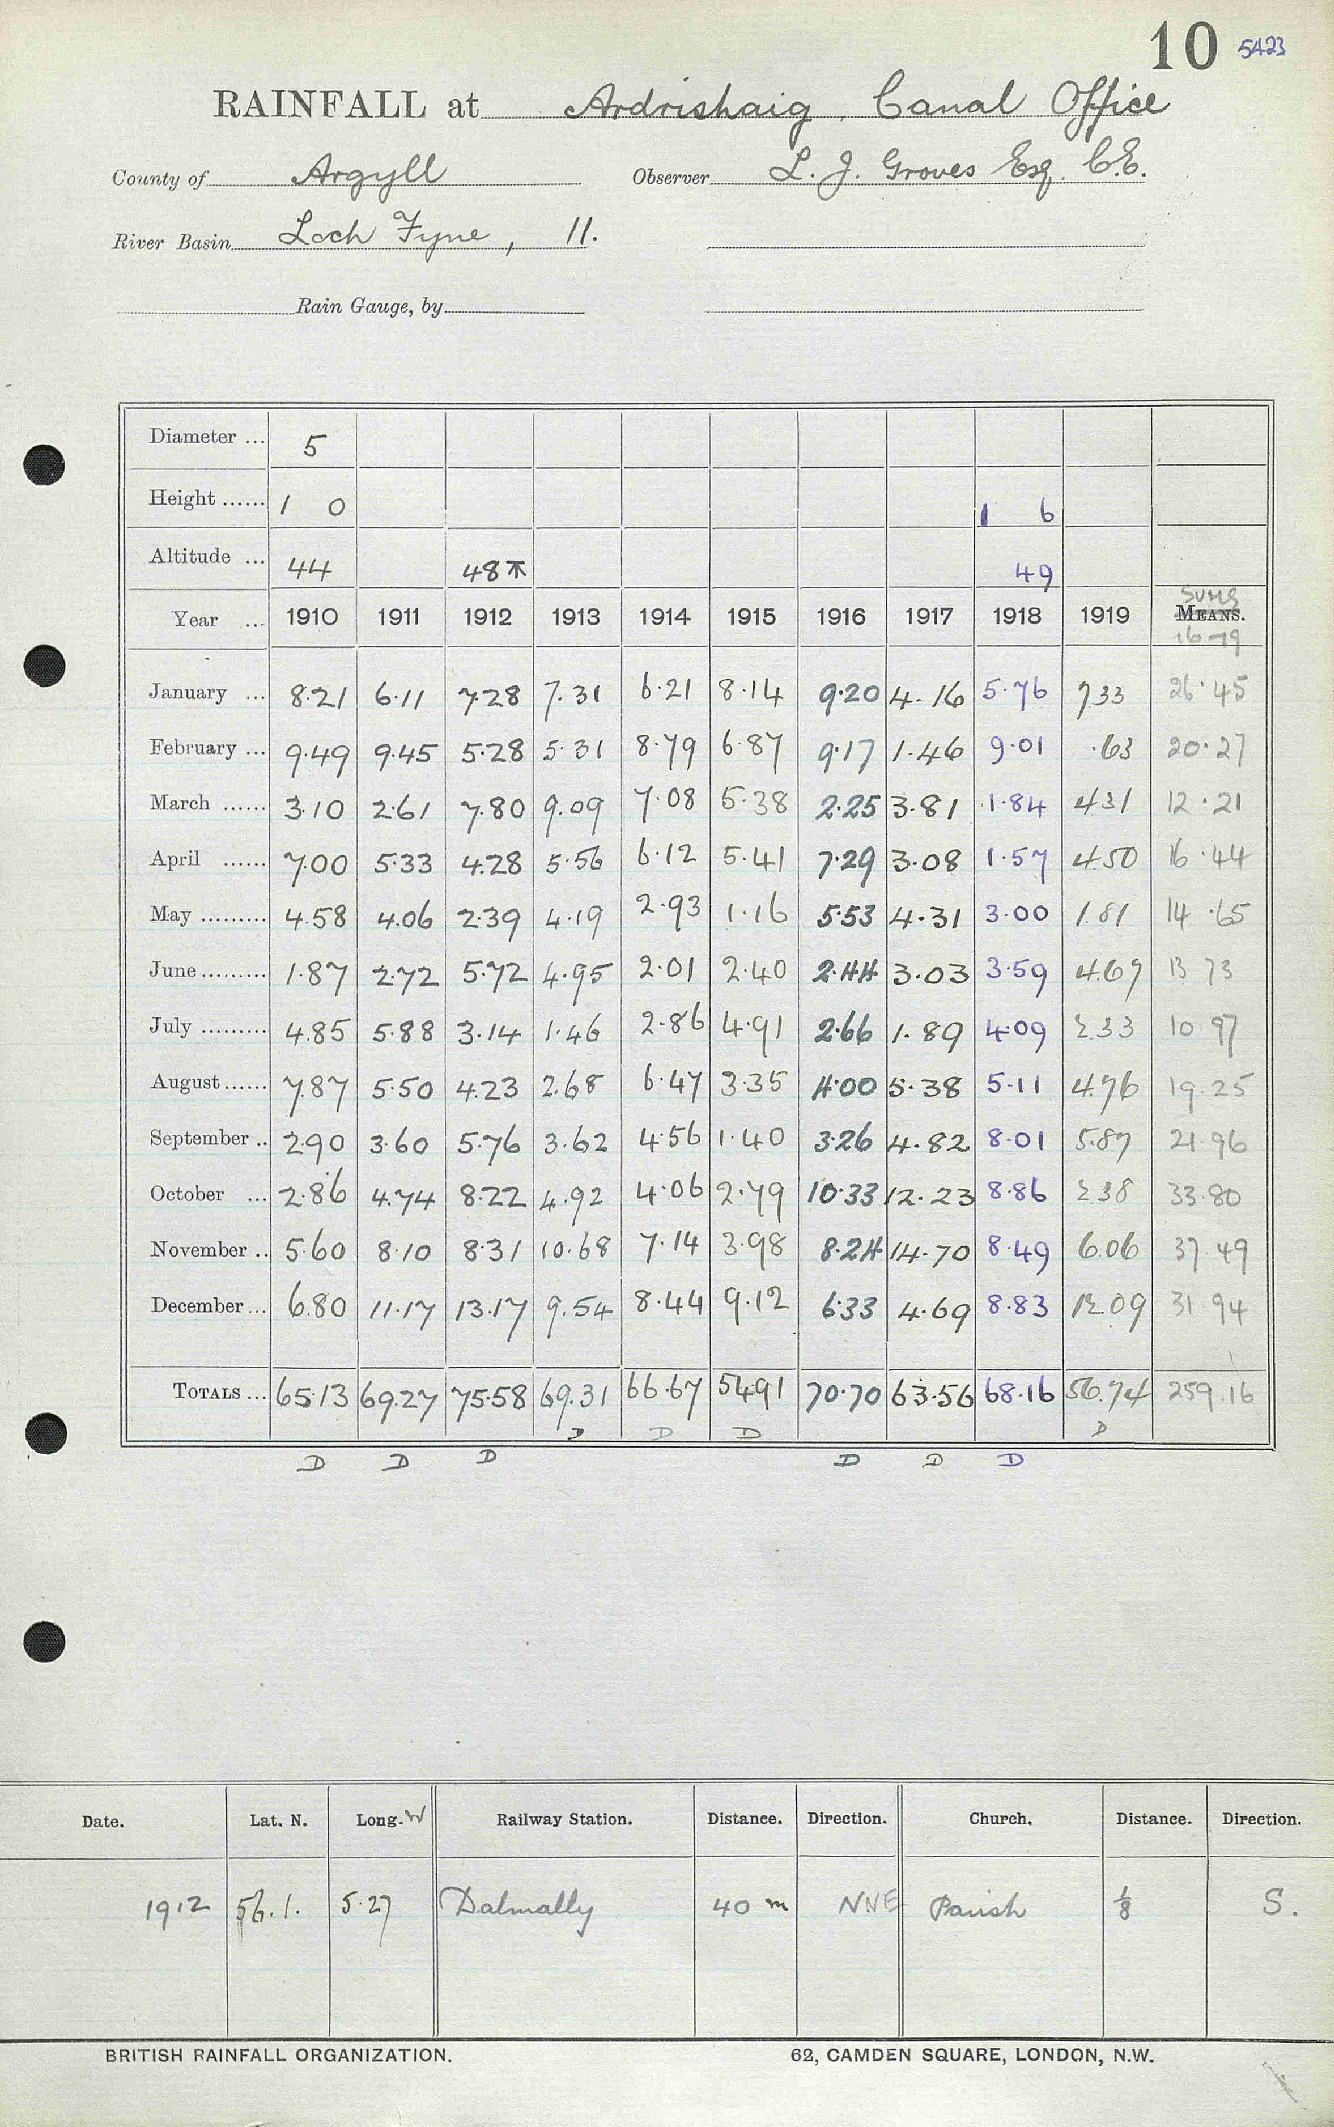 10 5423
RAINFALL at Ardrishaig. Canal Office
County of Argyll Observer L. J. Groves Esq. C.E.
River Basin Loch Fyne, 11.
Rain Gauge, by
Diameter ... 5
Height ...... 1 0 1 6
Altitude ... 44 48 ⚻ 49
SUMS
Year ... 1910 1911 1912 1913 1914 1915 1916 1917 1918 1919 MEANS.
16-19
January ... 8.21 6.11 7.28 7.31 6.21 8.14 9.20 4.16 5.76 7.33 26.45
February ... 9.49 9.45 5.28 5.31 8.79 6.87 9.17 1.46 9.01 .63 20.27
March ...... 3.10 2.61 7.80 9.09 7.08 5.38 2.25 3.81 1.84 4.31 12.21
April ...... 7.00 5.33 4.28 5.56 6.12 5.41 7.29 3.08 1.57 4.50 16.44
May ......... 4.58 4.06 2.39 4.19 2.93 1.16 5.53 4.31 3.00 1.81 14.65
June ......... 1.87 2.72 5.72 4.95 2.01 2.40 2.44 3.03 3.59 4.67 13 73
July ......... 4.85 5.88 3.14 1.46 2.86 4.91 2.66 1.89 4.09 2.33 10 97
August ...... 7.87 5.50 4.23 2.68 6.47 3.35 4.00 5.38 5.11 4.76 19.25
September .. 2.90 3.60 5.76 3.62 4.56 1.40 3.26 4.82 8.01 5.87 21.96
October ... 2.86 4.74 8.22 4.92 4.06 2.79 10.33 12.23 8.86 2.38 33.80
November .. 5.60 8.10 8.31 10.68 7.14 3.98 8.24 14.70 8.49 6.06 37.49
December ... 6.80 11.17 13.17 9.54 8.44 9.12 6.33 4.69 8.83 12.09 31.94
TOTALS ... 65.13 69.27 75.58 69.31 66.67 54.91 70.70 63.56 68.16 56.74 259.16
D D D D D D D D D D
Date. Lat. N. Long. W Railway Station. Distance. Direction. Church. Distance. Direction.
1912 56.1. 5.27 Dalmally 40 m NNE Parish 1/8 S.
BRITISH RAINFALL ORGANIZATION. 62, CAMDEN SQUARE, LONDON, N.W.